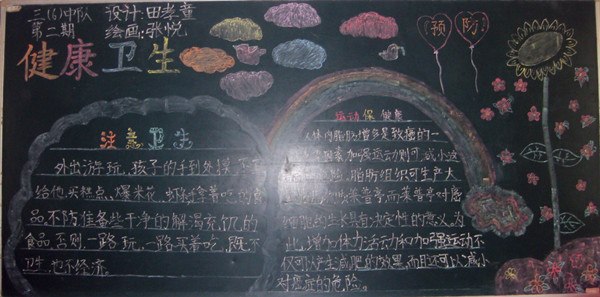 三(6)中队 设计:田孝童
第二期 绘画:张悦
健康卫生
预防
注意卫生
外出游玩,孩子的手到外摸,不
给他买糕点、爆米花、虾条拿着吃的食
品不防准备些干净的解渴充饥的
食品,否则一路玩,一路买着吃,既不
卫生,也不经济。
运动保健康
人体内脂肪增多是致癌的一
加强运动则可减小这
脂肪组织可生产大
而莱普亭对癌
细胞的生长具有决定性的意义,为
此,增加体力活动和加强运动不
仅可以产生减肥的效果,而且还可以减小
对癌症的危险。